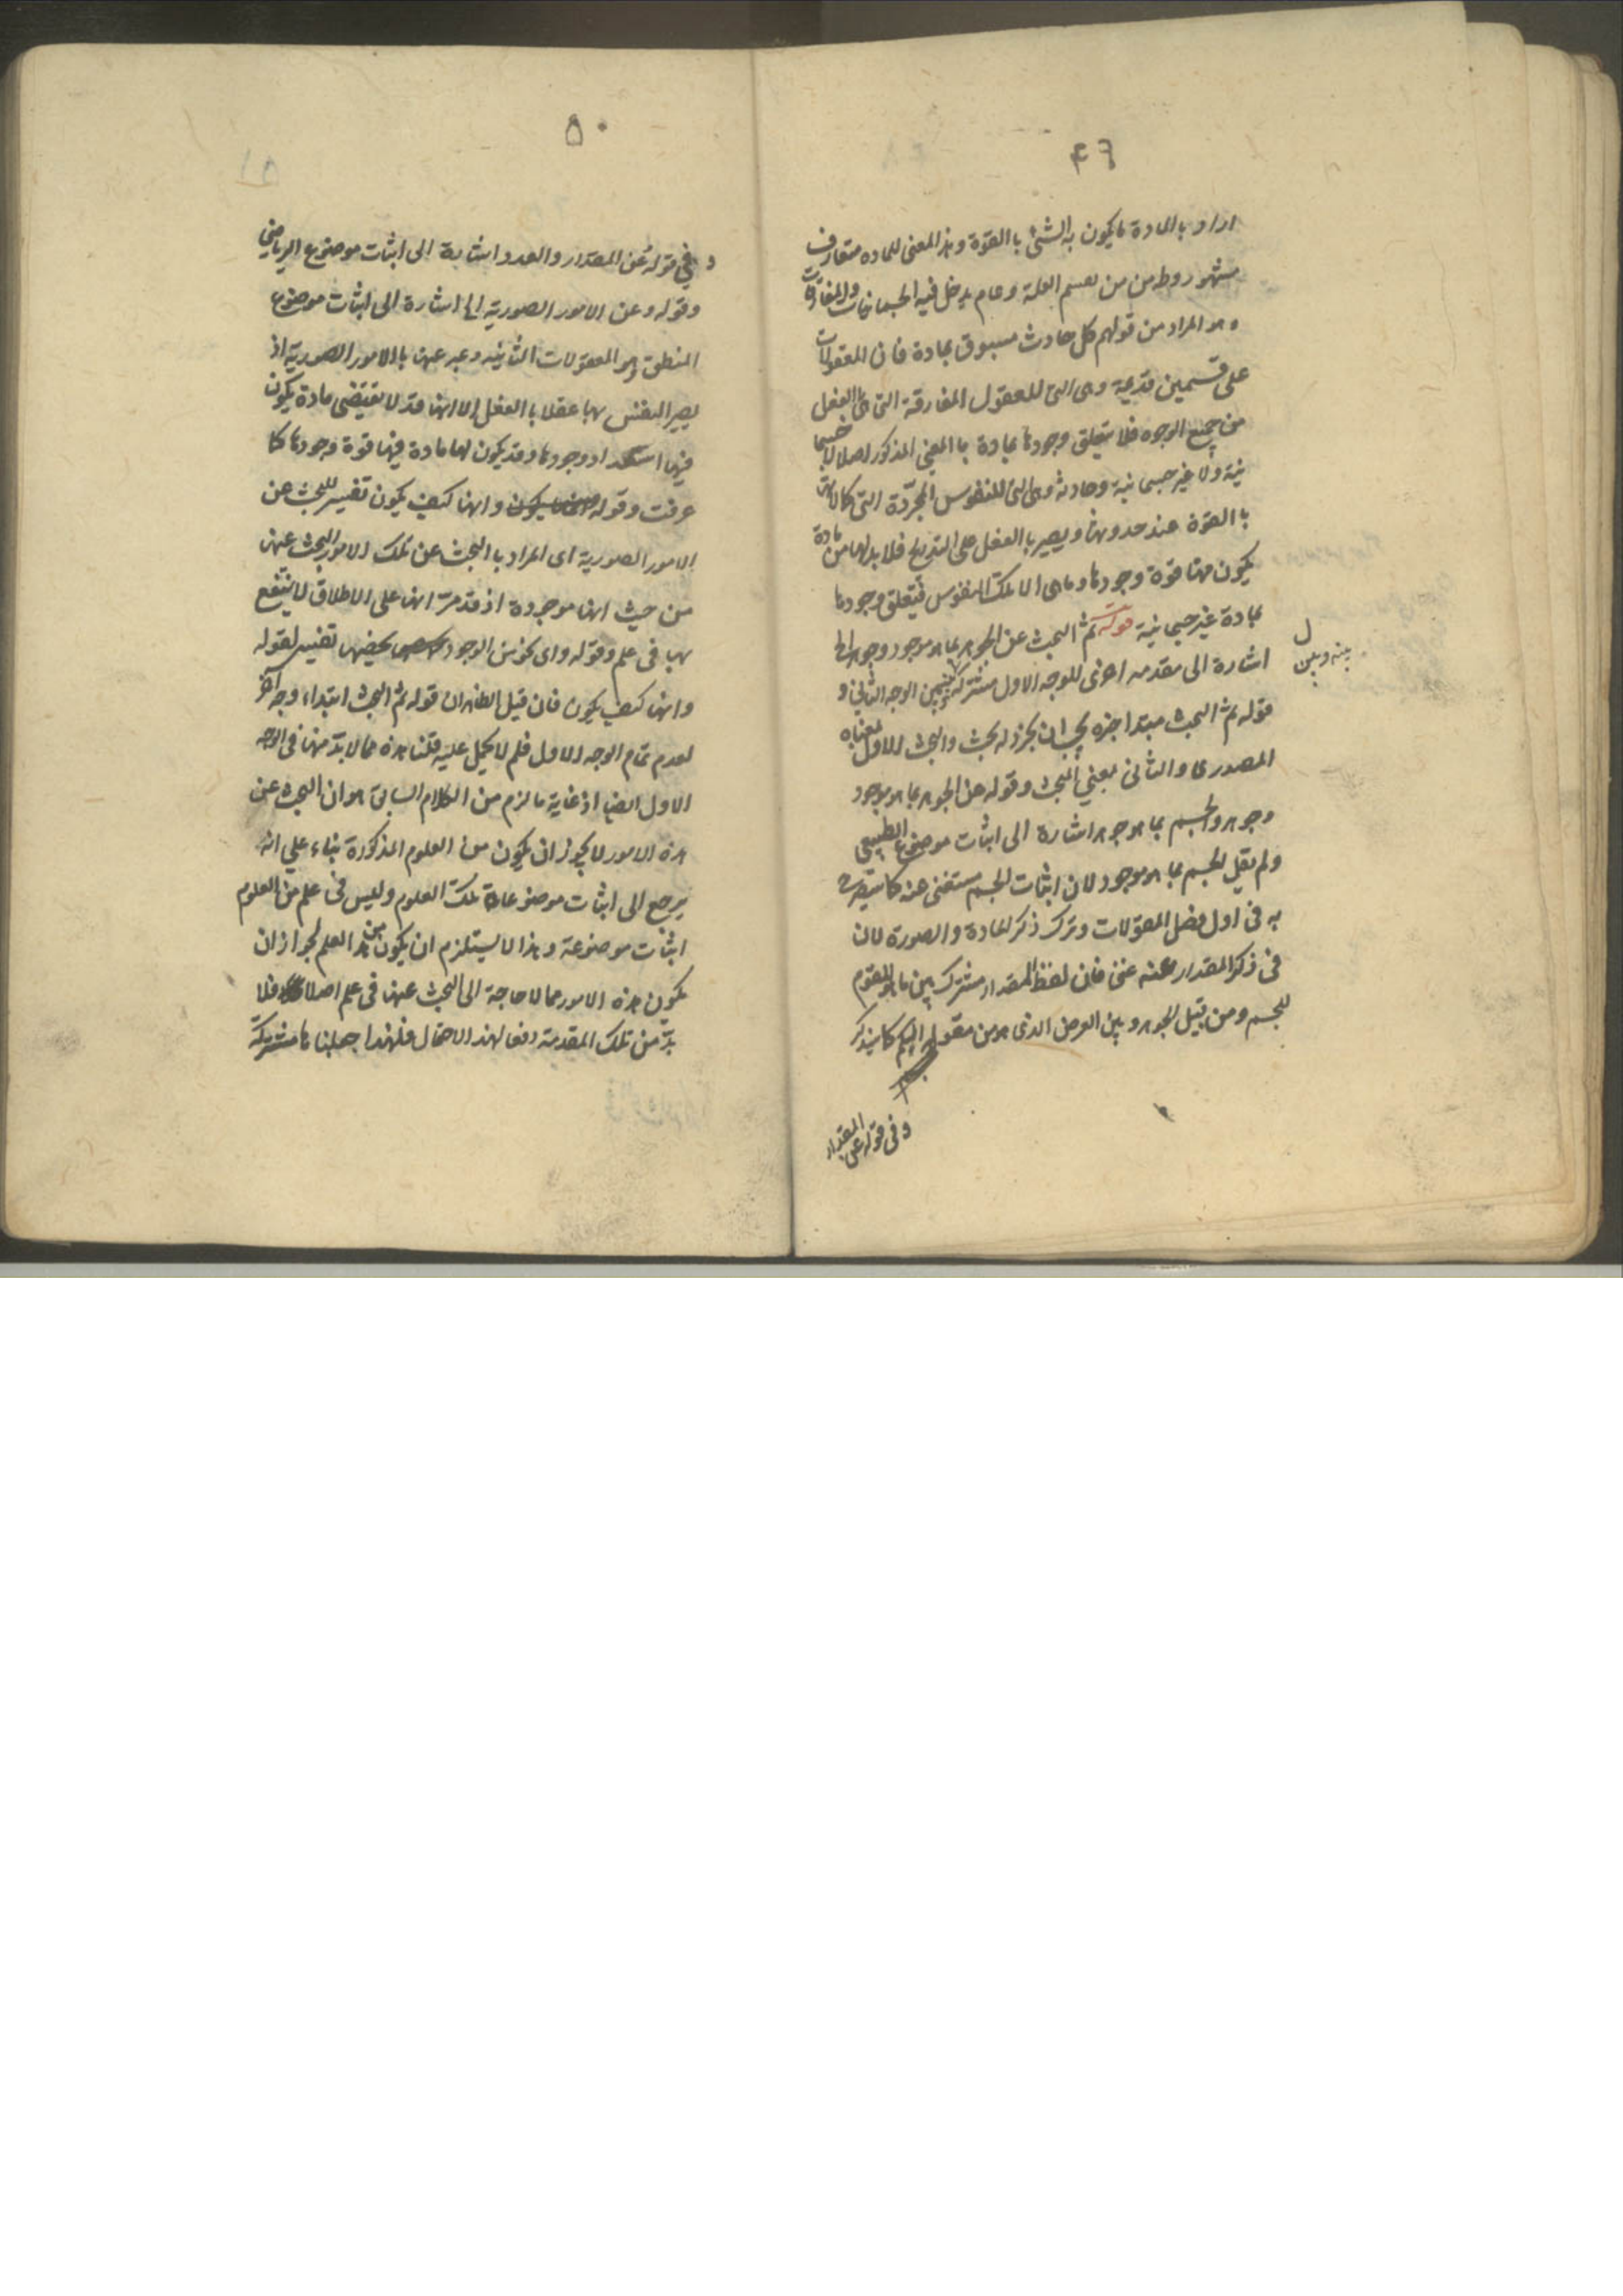 ۴۹
اراد بالمادة ما يكون به الشئ بالقوة وهذا المعنى للمادة متعارف
مشهور من تقسيم العلة وعام يدخل فيه الجسمانيات والمفارقات
وهو المراد من قولهم كل حادث مسبوق بمادة فان المعقولات
على قسمين قديمة وهى التى للعقول المفارقة التى هى بالفعل
من جميع الوجوه فلا يتعلق وجودها بمادة بالمعنى المذكور اصلا لا جسما
نية ولا غير جسمانية وحادثة وهى التى للنفوس المجردة التى كمالاتها
بالقوة عند حدوثها ويصير بالفعل على التدريج فلا بد لها من مادة
يكون فيها قوة وجودها وما هى الا تلك النفوس فيتعلق وجودها
بمادة غير جسمانية قوله ثم البحث عن الجوهر بما هو موجود وجوهر الخ
اشارة الى مقدمه اخرى للوجه الاول مشتركة بينه وبين الوجه الثانى و
بينه وبين
قوله ثم البحث مبتدا خبره يجب ان يجرد له بحث والبحث الاول بمعناه
المصدرى والثانى بمعنى المبحث وقوله عن الجوهر بما هو موجود
وجوهر والجسم بما هو جوهر اشارة الى اثبات موضوع الطبيعى
ولم يقل الجسم بما هو موجود لان اثبات الجسم مستغنى عنه كما سيصرح
به فى اول فصل المقولات وترك ذكر المادة والصورة لان
فى ذكر المقدار عنه غنى فان لفظ المقدار مشترك بين ما هو المقوم
للجسم ومن قبيل الجوهر وبين العرض الذى هو من مقولة الكم كما سيذكر
وفى قوله عن المقدار
۵۰
وفى قوله عن المقدار والعدد اشارة الى اثبات موضوع الرياضى
وقوله وعن الامور الصورية الخ اشارة الى اثبات موضوع
المنطق وهو المعقولات الثانية وعبر عنها بالامور الصورية اذ
يصير النفس بها عقلا بالفعل الا انها قد لا تقتضى مادة يكون
فيها استعداد وجودها وقد يكون لها مادة فيها قوة وجودها كما
عرفت وقوله وانها كيف يكون تفسير للبحث عن
الامور الصورية اى المراد بالبحث عن تلك الامور البحث عنها
من حيث انها موجودة اذ قد مر انها على الاطلاق لا ينتفع
بها فى علم وقوله واى نحو من الوجود يخصها تفسير لقوله
وانها كيف يكون فان قيل الظاهر ان قوله ثم البحث ابتداء وجه آخر
لعدم تمام الوجه الاول فلم لا يحمل عليه قلنا هذه مما لا بد منها فى الوجه
الاول ايضا اذ غاية ما لزم من الكلام السابق هو ان البحث عن
هذه الامور لا يجوز ان يكون من العلوم المذكورة بناء على انه
يرجع الى اثبات موضوعات تلك العلوم وليس فى علم من العلوم
اثبات موضوعه وهذا لا يستلزم ان يكون من هذا العلم لجواز ان
يكون هذه الامور مما لا حاجة الى البحث عنها فى علم اصلا فلا
بد من تلك المقدمة دفعا لهذا الاحتمال فلهذا جعلناها مشتركة